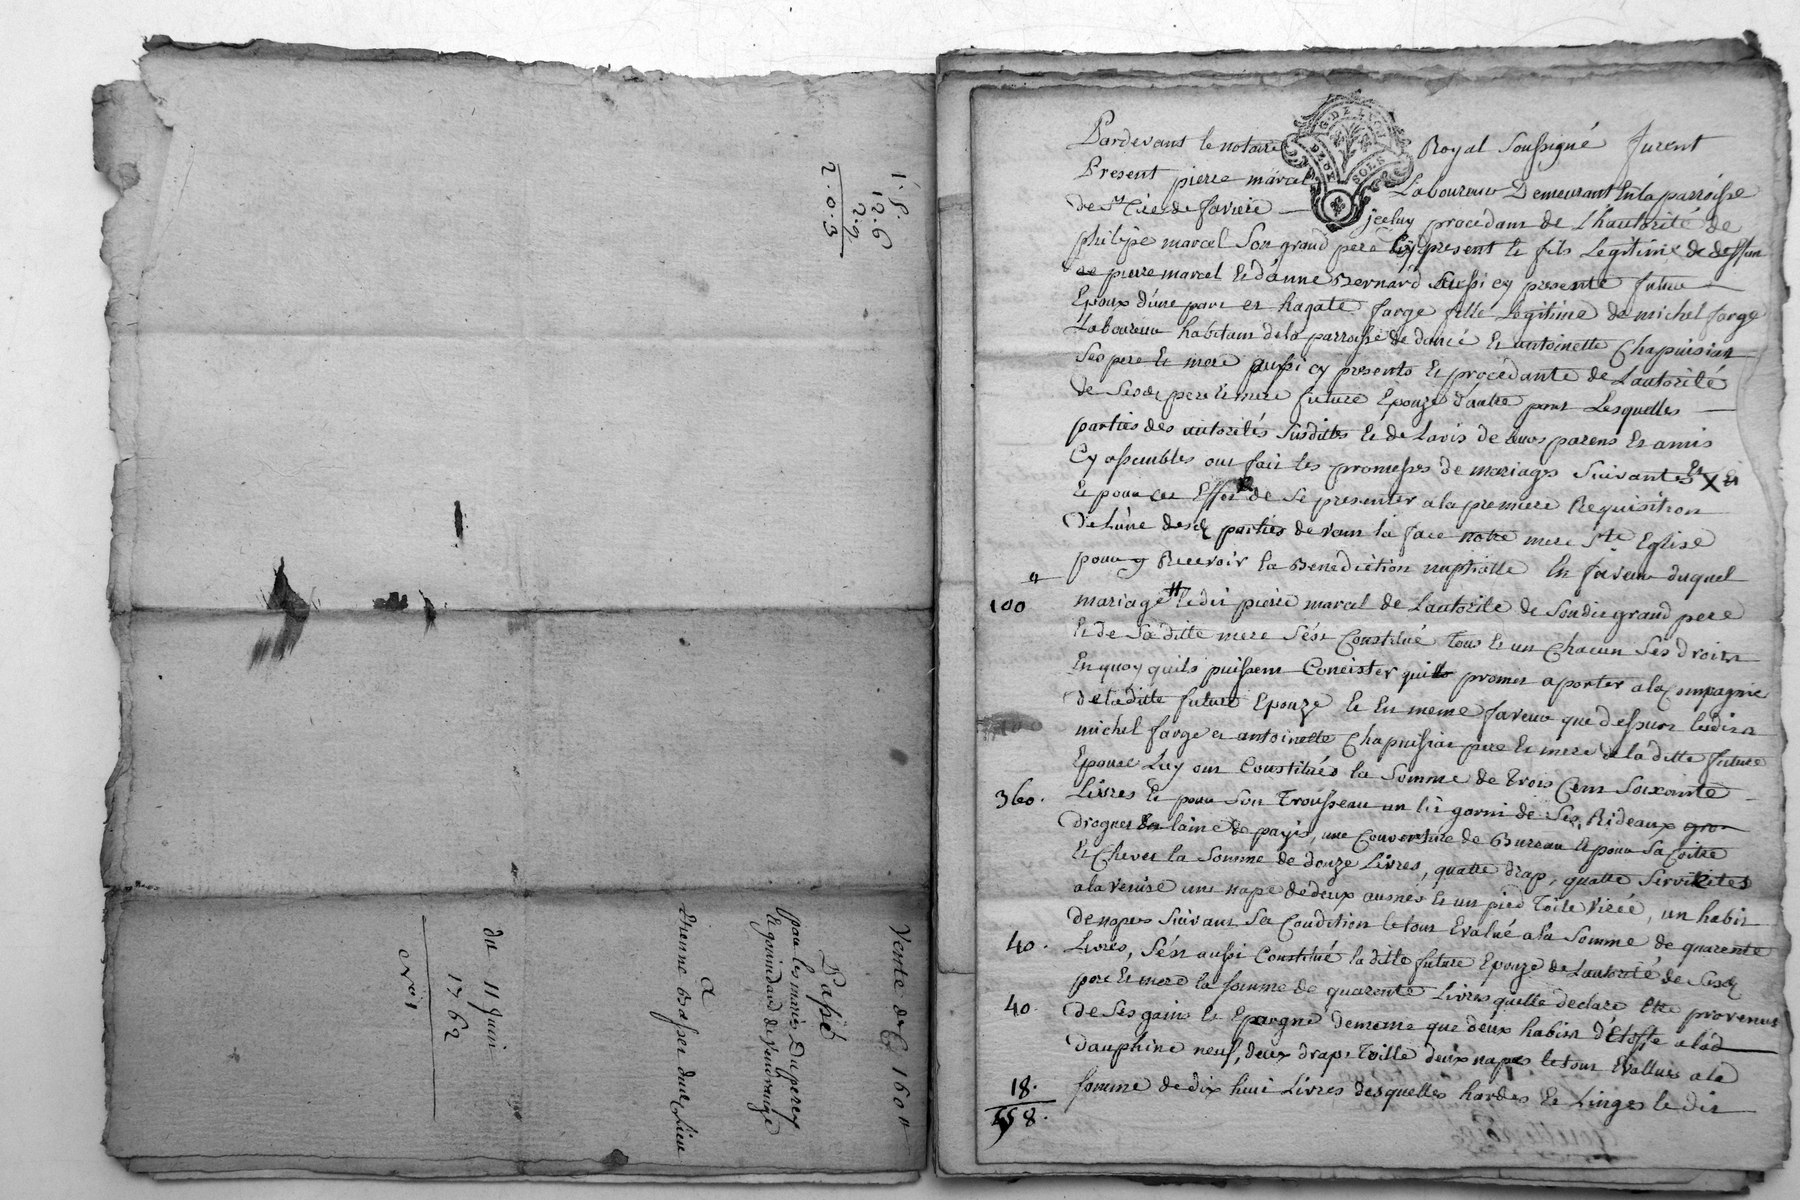 1.5.
12.6
2.9
2.0.3
Vente de 160"
Passé
par les mariés Duperrey
et gouindard de Vendrange
a
Etienne Basser dud. Lieu
du 11 juin
1762
N° 1
G. DE LYON
DEUX SOLS
Pardevant le notaire Royal Soussigné furent
Present pierre marcel Laboureur Demeurant En la parroisse
de St Cire de favieres jceluy procedant de L'hautorité de
philipe marcel Son grand pere Cy present et fils Legitime de deffun
pierre marcel et d'anne Bernard aussi cy presente futur
Epoux d'une part et hagate farge fille Legitime de michel farge
Laboureur habitant de la parroisse de dancé et antoinette Chapuisiat
Ses pere et mere aussi cy presents et procedante de Lautorité
de Sesd. pere et mere future Epouze d'autre part Lesquelles
parties des autorités Susdittes et de Lavis de leurs parens et amis
Cy assemblés ont fait les promesses de mariages Suivantes
et pour cet Effet de Se presenter a la premiere Requisition
de Lune desd. parties devant la face notre mere Ste Eglise
pour y Recevoir la Benediction nuptialle En faveur duquel
100" mariage # Ledit pierre marcel de Lautorité de Sondit grand pere
et de Sa ditte mere S'est Constitué tous et un Chacun Ses droits
En quoy quils puissent Concister quil promet aporter a la Compagnie
de laditte future Epouze et En meme faveur que dessus lesdits
michel farge et antoinette Chapuissiat pere et mere a la ditte future
Epouse Luy ont Constitués la Somme de trois Cent Soixante
360. Livres et pour Son Trousseau un lit garni de Ses Rideaux
droguet laine de payis, une Couverture de Bureau et pour Sa Coitre
et Chevet la Somme de douze Livres, quatte drap, quatte Serviettes
a la Venise une nape de deux aunes et un pied toile Virée, un habit
de nopces Suivant Sa Condition le tout Evalué a la Somme de quarente
40. Livres, S'est aussi Constitué laditte future Epouze de Lautorité de Sesd.
pere et mere la somme de quarente Livres quelle declare Etre provenus
40. de Ses gains et Epargne dememe que deux habits d'Etoffe a lad
dauphine neuf, deux draps toille deux napes le tout Evallués a la
18. somme de dix huit Livres desquelles hardes et Linges le dit
558.